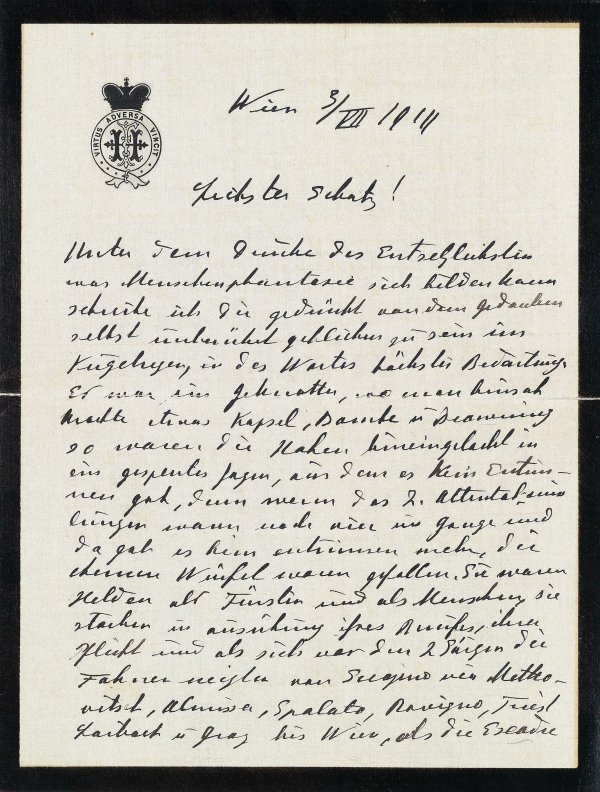 VIRTUS ADVERSA VINCIT
Wien 3/VII 1914
Liebster Schatz!
Unter dem Drucke des Entsetzlichsten
was Menschenphantasie sich bilden kann
schreibe ich Dir gedrückt von dem Gedanken
selbst unberührt geblieben zu sein im
Kugelregen, in des Wortes höchster Bedeutung.
Es war ein Geknatter, wo man hinsah
krachte etwas Kapsel, Bombe u Browning
so waren die Hohen hineingelockt in
ein gesperrtes Jagen, aus dem es kein Entrin-
nen gab, denn wenn das 2. Attentat miss-
lungen waren noch vier im Gange und
da gab es kein entrinnen mehr, die
ehernen Würfel waren gefallen. Sie waren
Helden als Fürsten und als Menschen, sie
starben in ausübung ihres Berufes, ihrer
Pflicht und als sich vor den 2 Särgen die
Fahnen neigten von via Metko-
vitch, Almissa, Spalato, Rovigno, Triest
Laibach u Graz bis Wien, als die Escadre